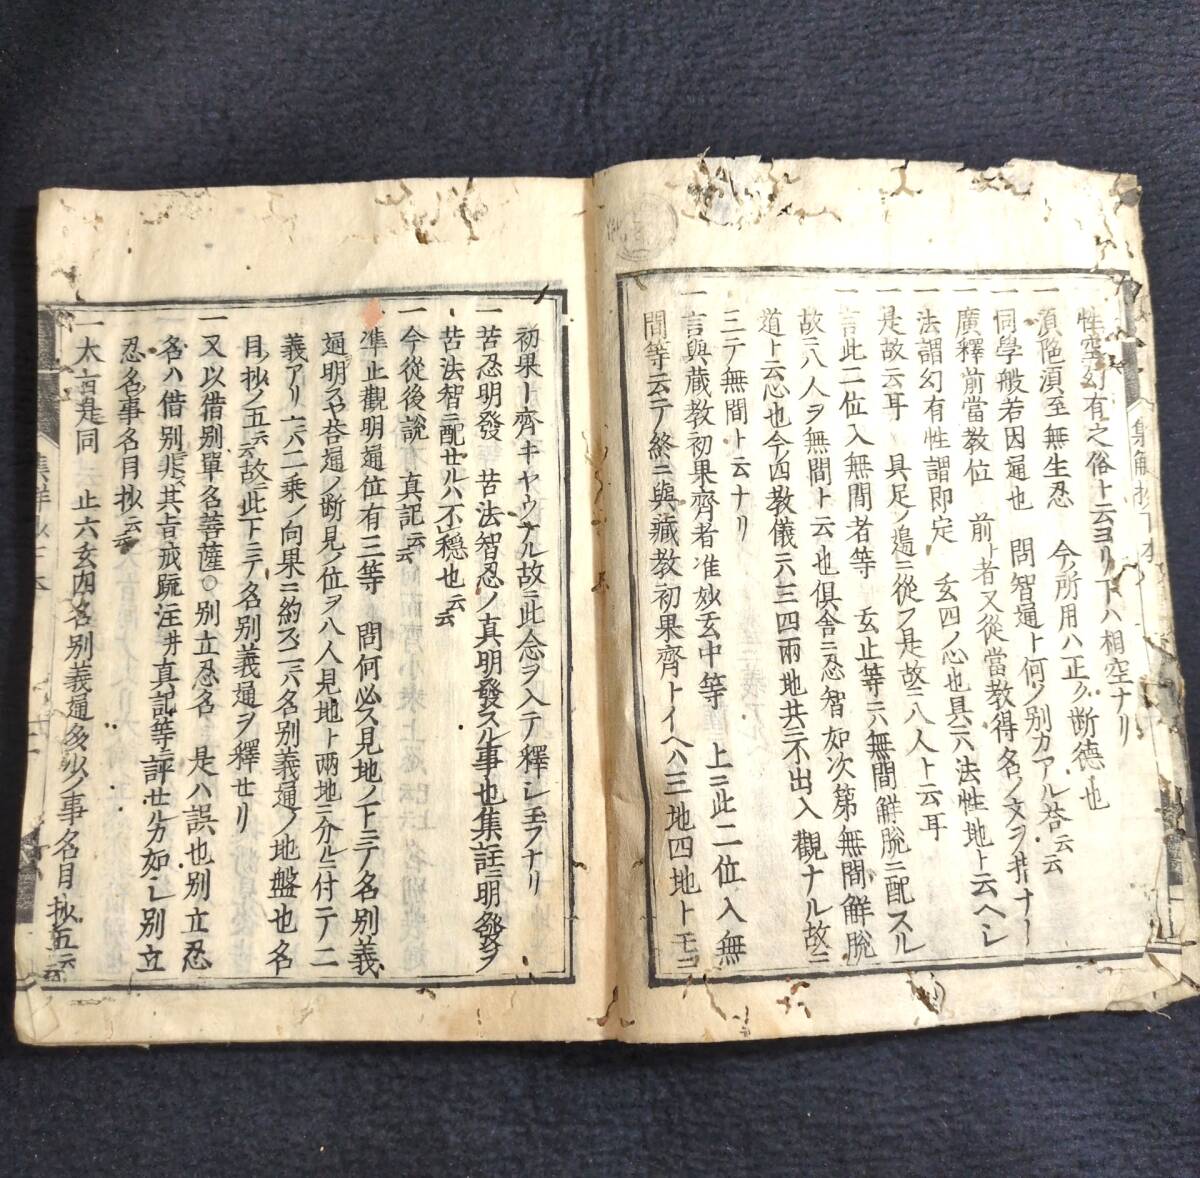 性空幻有之俗ト云ヨリ下ハ相空ナリ
一 須陀洹至無生忍 今ノ所用ハ正ク断德也
一 同學般若因通也 問智通ト何ノ別カアル荅云云
一 廣釋前當教位 前ト者又從當教得名ノ文ヲ指ナリ
一 法謂幻有性謂即定 玄四ノ心也具ニハ法性地上云ヘシ
是故云耳 具足ノ邊ニ從フ是故ニ八人ト云耳
一 言此二位入無間者等 玄止等ニハ無間解脱ニ配スル
故ニ八人ヲ無間ト云也俱舎ニ忍智如次第無間解脱
道ト云心也今ノ四教儀ニハ三四兩地共ニ不出入觀ナル故ニ
三テ無間ト云ナリ
一 言與藏教初果齊者准妙玄中等 上ニ此二位入無
間等云テ終ニ與藏教初果齊トイヘハ三地四地トモニ
初果ト齊キヤウナル故ニ此念ヲ入テ釋シ玉フナリ
一 苦忍明發 苦法智忍ノ真明發スル事也集註ニ明發ヲ
苦法智ニ配せルハ不穩也云云
一 今從後說 真記云云
一 準止觀明通位有三等 問何必ス見地ノ下ニテ名別義
通明スヤ荅通ノ断見ノ位ヲ八人見地ト两地ニ分ルニ付ニテ二
義アリ一ハ二乘ノ向果ニ約ス二ハ名別義通ノ地盤也名
目抄ノ五云故ニ此下ニテ名別義通ヲ釋せリ
一 又以借別單名菩薩○別立忍名 是ハ誤也別立忍
名ハ借別非ス其旨戒䟽注并真記等ニ評せルカ如シ別立
忍名事名目抄云云
一 大旨是同 止六玄四名別義通多少ノ事名目抄五云云